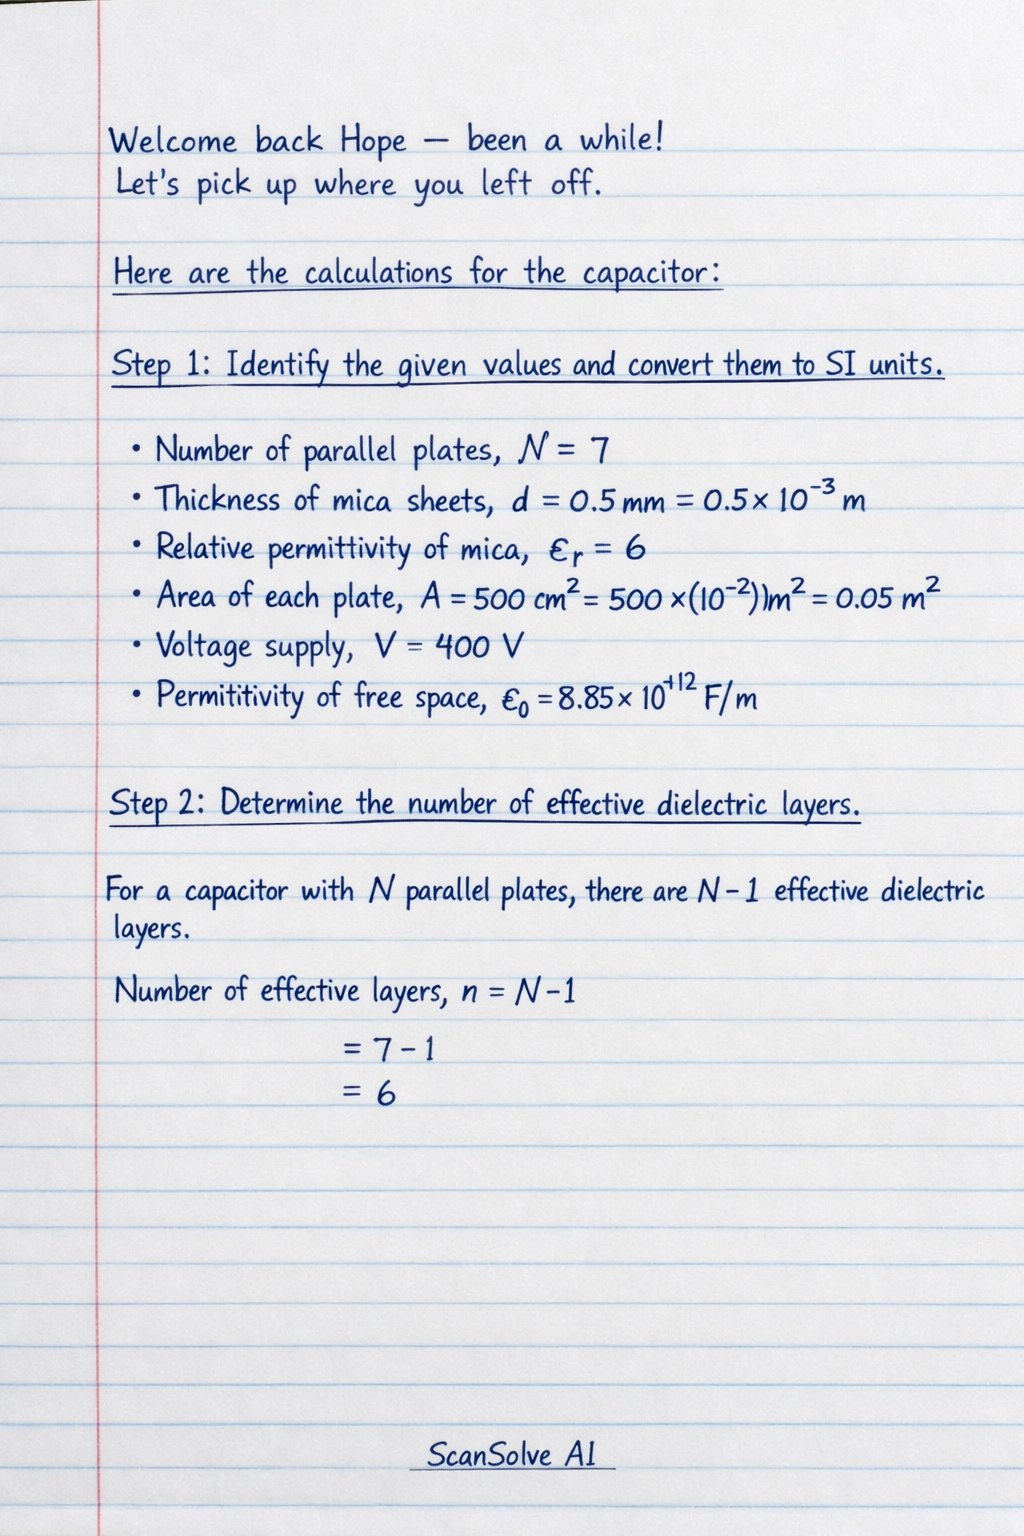 Welcome back Hope – been a while!
Let's pick up where you left off.
Here are the calculations for the capacitor:
Step 1: Identify the given values and convert them to SI units.
• Number of parallel plates, N = 7
• Thickness of mica sheets, d = 0.5 mm = 0.5 × 10⁻³ m
• Relative permittivity of mica, ϵᵣ = 6
• Area of each plate, A = 500 cm² = 500 ×(10⁻²))m² = 0.05 m²
• Voltage supply, V = 400 V
• Permititivity of free space, ϵ₀ = 8.85 × 10⁺¹² F/m
Step 2: Determine the number of effective dielectric layers.
For a capacitor with N parallel plates, there are N – 1 effective dielectric
layers.
Number of effective layers, n = N – 1
= 7 – 1
= 6
ScanSolve AI